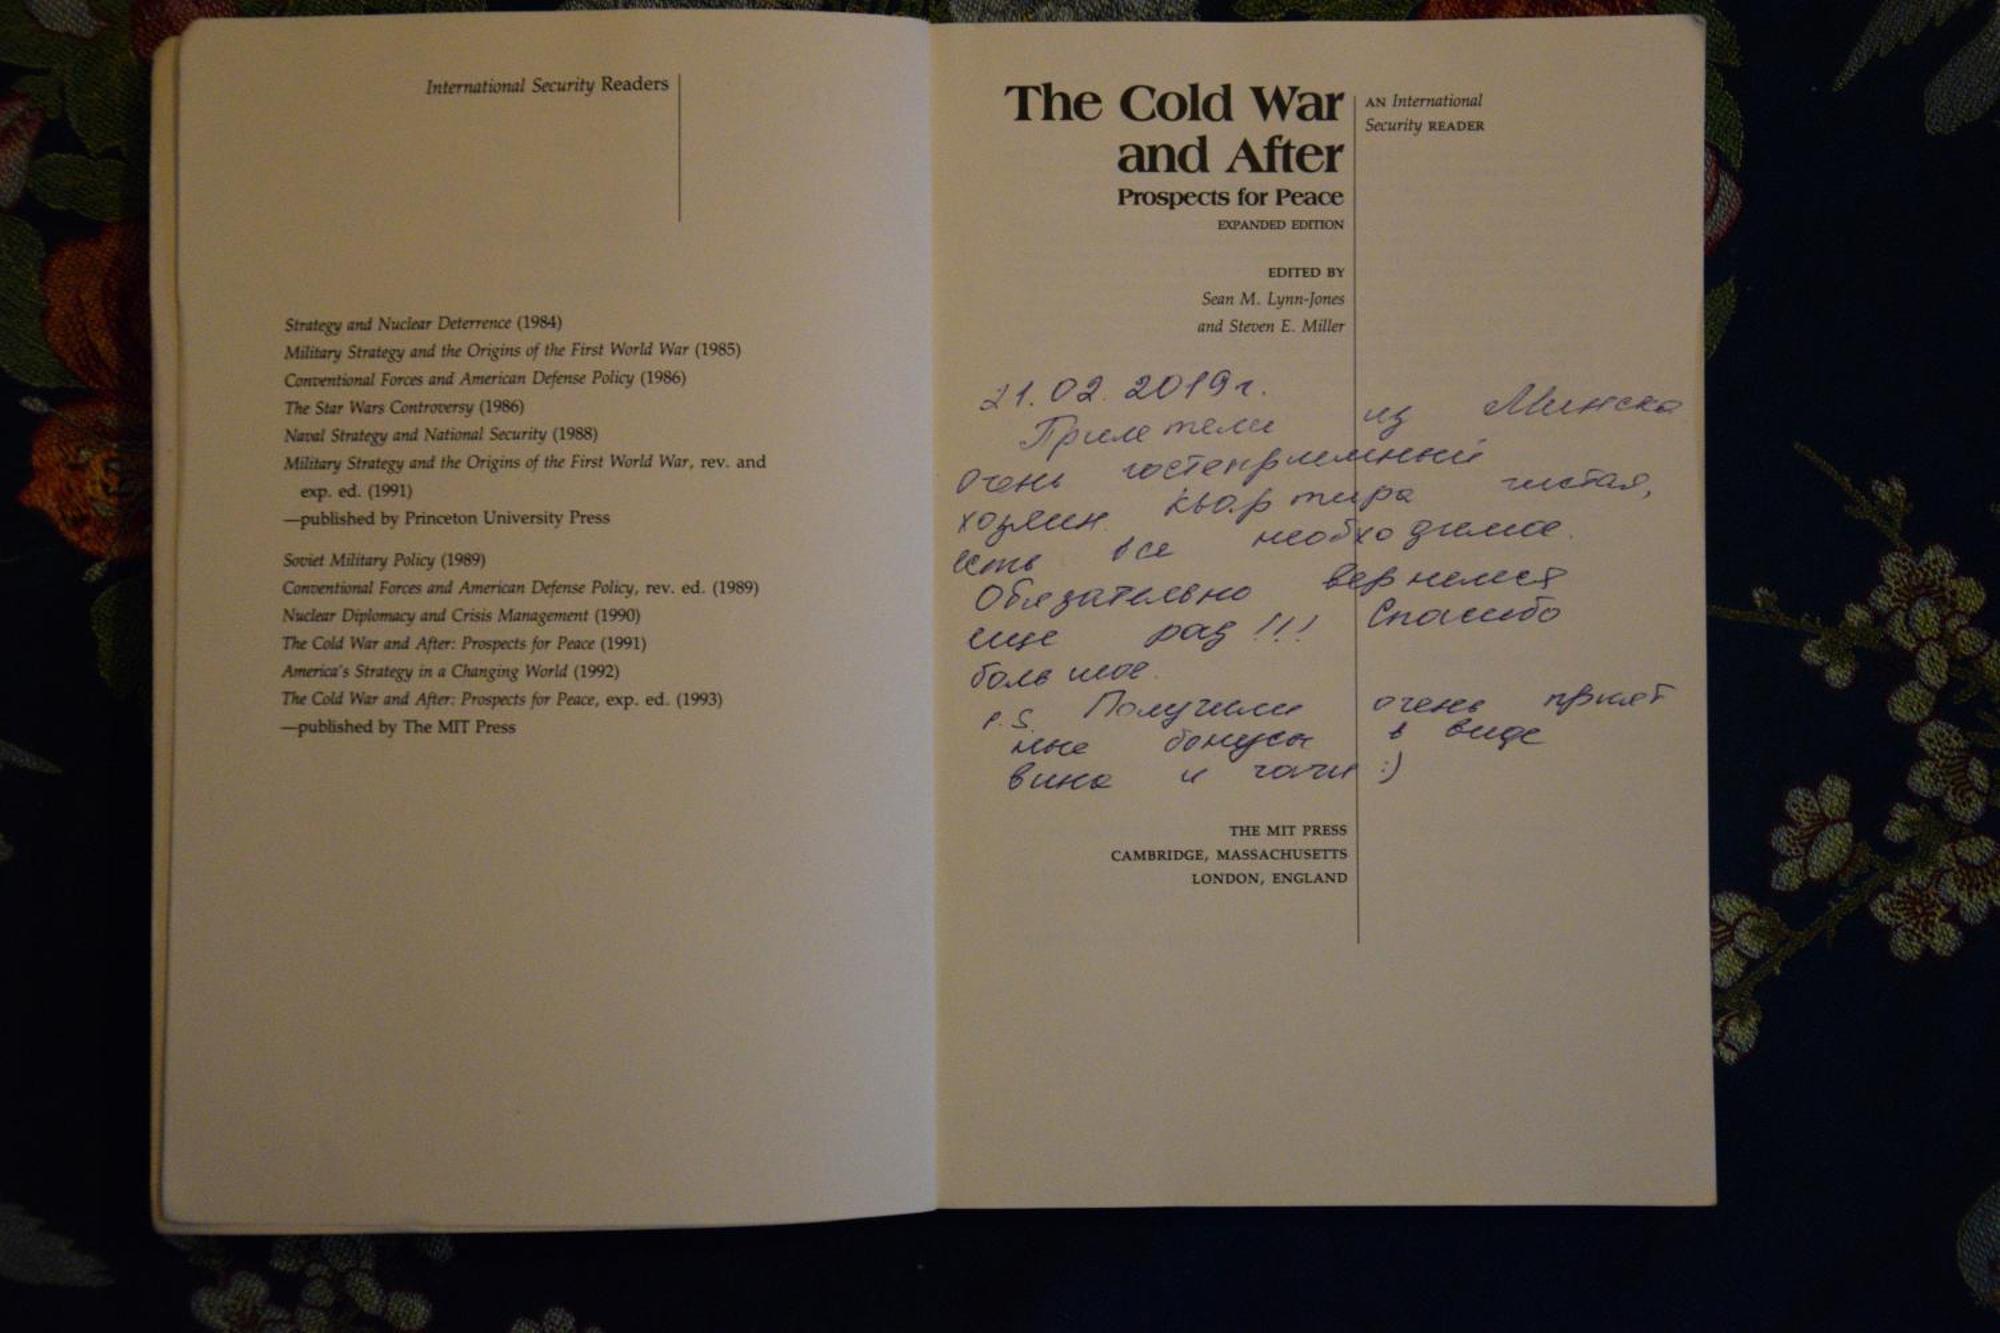 International Security Readers
Strategy and Nuclear Deterrence (1984)
Military Strategy and the Origins of the First World War (1985)
Conventional Forces and American Defense Policy (1986)
The Star Wars Controversy (1986)
Naval Strategy and National Security (1988)
Military Strategy and the Origins of the First World War, rev. and
exp. ed. (1991)
—published by Princeton University Press
Soviet Military Policy (1989)
Conventional Forces and American Defense Policy, rev. ed. (1989)
Nuclear Diplomacy and Crisis Management (1990)
The Cold War and After: Prospects for Peace (1991)
America's Strategy in a Changing World (1992)
The Cold War and After: Prospects for Peace, exp. ed. (1993)
—published by The MIT Press
The Cold War
and After
Prospects for Peace
EXPANDED EDITION
AN International
Security READER
EDITED BY
Sean M. Lynn-Jones
and Steven E. Miller
21.02.2019г.
Прилетели из Минска
Очень гостеприимный
хозяин. Квартира чистая,
есть все необходимое.
Обязательно вернемся
еще раз!!! Спасибо
большое.
P.S. Получили очень прият
ные бонусы в виде
вина и чачи :)
THE MIT PRESS
CAMBRIDGE, MASSACHUSETTS
LONDON, ENGLAND